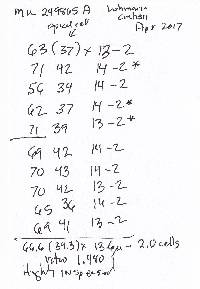 MU 249865 A
apical cell
Apr 2017
63 (37) x 13-2
71 42 14-2 *
56 34 14-2
62 37 14-2 *
71 39 13-2 *
69 42 14-2
70 43 14-2
70 42 13-2
65 36 14-2
69 41 13-2
66.6 (39.3) x 13.6µ - 2.0 cells
ratio 1.480